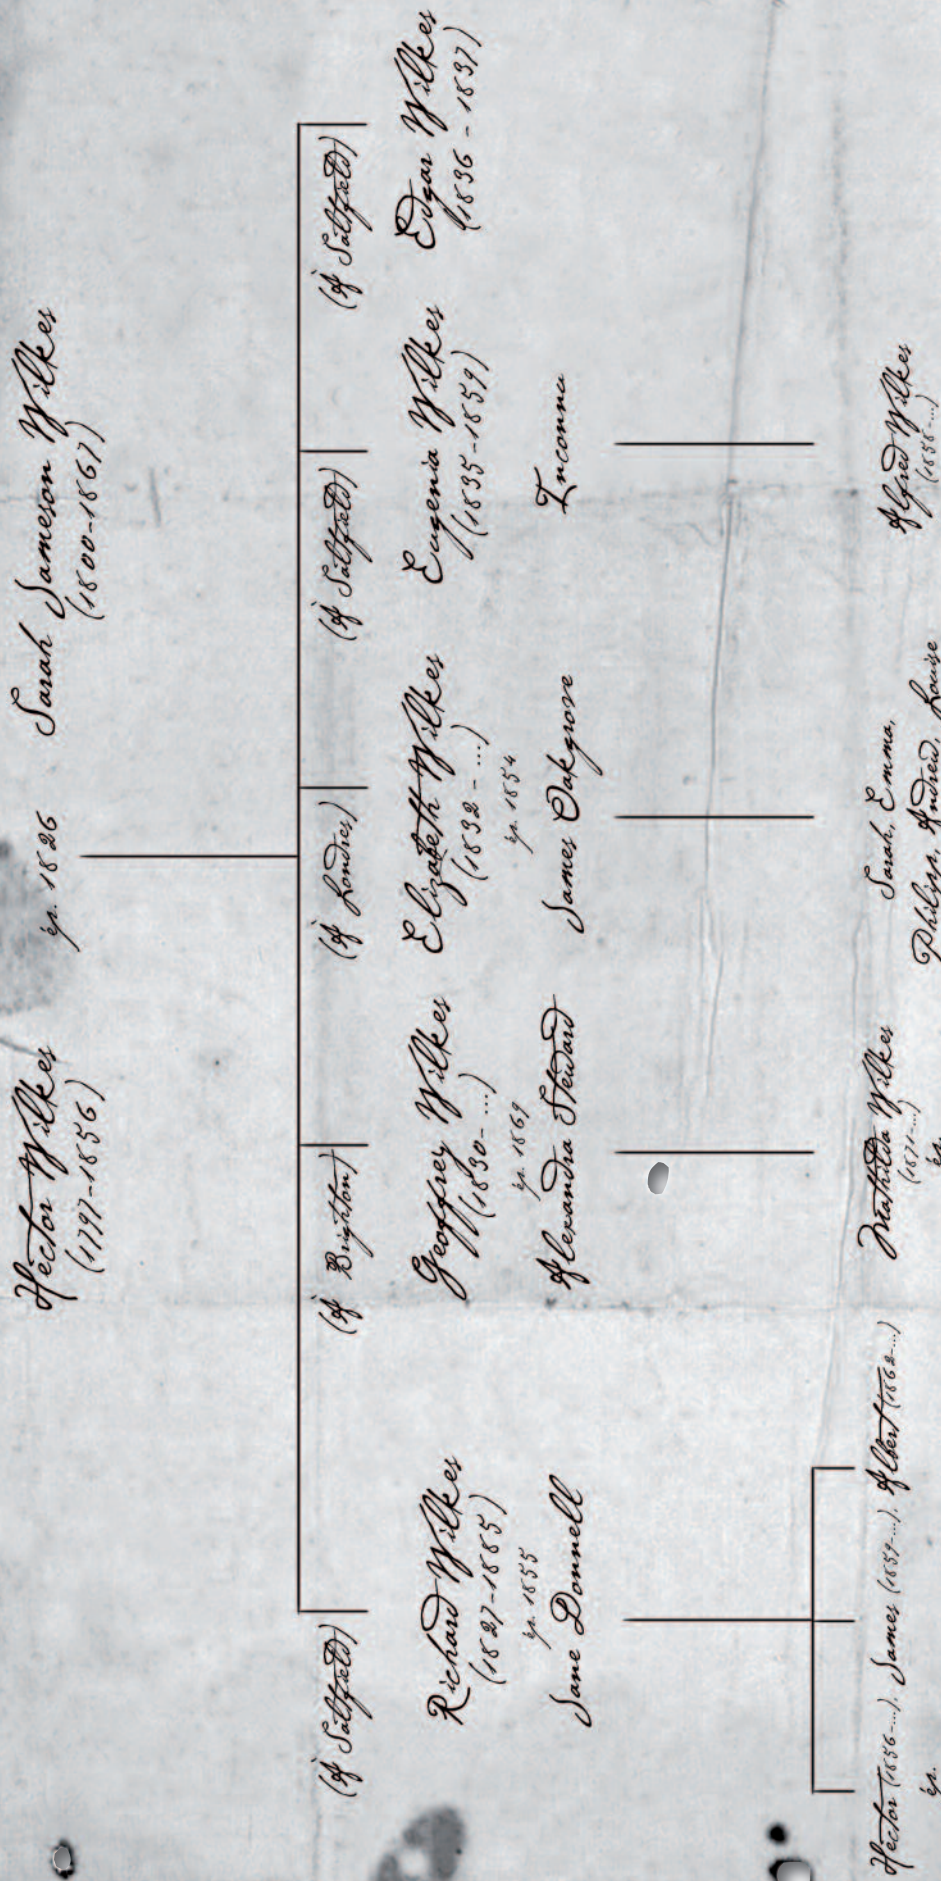 Hector Wilkes
(1797-1856)
ép. 1826
Sarah Jameson Wilkes
(1800-1867)
(A Saltfield)
(A Brighton)
(A Londres)
(A Saltfield)
(A Saltfield)
Richard Wilkes
(1827-1885)
ép. 1855
Jane Donnell
Geoffrey Wilkes
(1830-...)
ép. 1869
Alexandra Steward
Elizabeth Wilkes
(1832 - ...)
ép. 1854
James Oakgrove
Eugenia Wilkes
(1835-1859)
Inconnu
Edgar Wilkes
(1836 - 1837)
Hector (1856-...), James (1859-...), Albert (1862-...)
ép.
Mathilda Wilkes
(1871-...)
ép.
Sarah, Emma,
Philipp, Andrew, Louise
Alfred Wilkes
(1858-...)